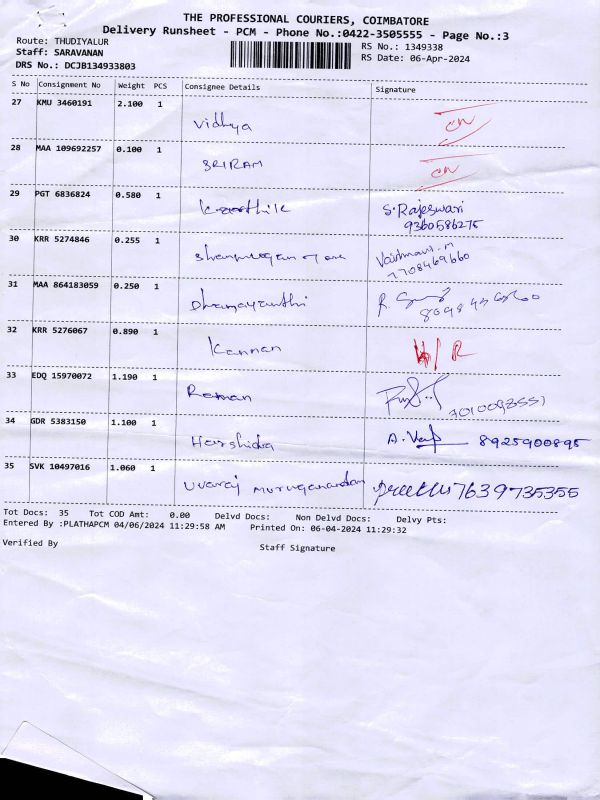 THE PROFESSIONAL COURIERS, COIMBATORE
Delivery Runsheet - PCM - Phone No.:0422-3505555 - Page No.:3
Route: THUDIYALUR
RS No.: 1349338
Staff: SARAVANAN
RS Date: 06-Apr-2024
DRS No.: DCJB134933803
S No Consignment No Weight PCS Consignee Details Signature
27 KMU 3460191 2.100 1
Vidhya
28 MAA 109692257 0.100 1
SRIRAM
29 PGT 6836824 0.580 1
S.Rajeswari
9360586275
30 KRR 5274846 0.255 1
7708469660
31 MAA 864183059 0.250 1
Dhamayanthi
32 KRR 5276067 0.890 1
Kannan
33 EDQ 15970072 1.190 1
Raman
34 GDR 5383150 1.100 1
Harshidra 8925900895
35 SVK 10497016 1.060 1
Uvaraj Muruganandam 7639735355
Tot Docs: 35 Tot COD Amt: 0.00 Delvd Docs: Non Delvd Docs: Delvy Pts:
Entered By :PLATHAPCM 04/06/2024 11:29:58 AM Printed On: 06-04-2024 11:29:32
Verified By
Staff Signature